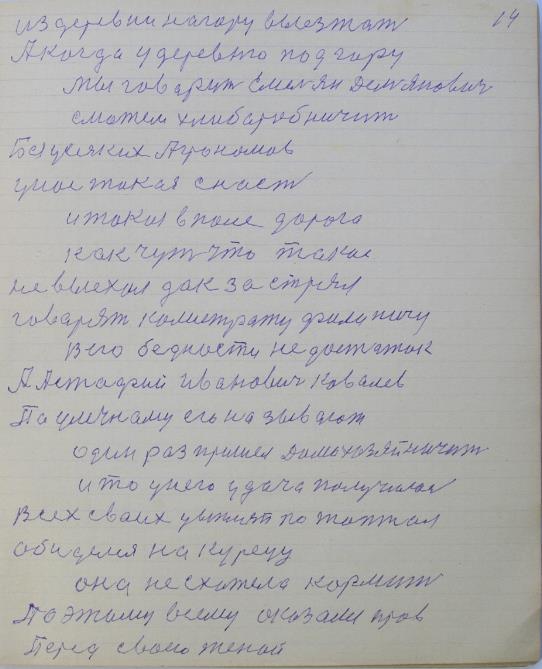 из деревни нагору вылезжат 14
А когда у деревню под гору
мы говарит Емелян Демянович
сможем хлибаробничит
Без усяких Агрономов
умое такая снаст
и такая в поле дорога
как чут что такое
не выехал дак застрял
говарят калистрату филипичу
в его бедности недостаток
А Астафий Иванович Ковалев
Па уличнаму его называют
один раз пришел Дамохозяйничит
и то унего удача получилас
всех сваих утят потоптал
обиделся на курецу
она несхотела кормит
Па этаму всему оказали
Перед своею женой